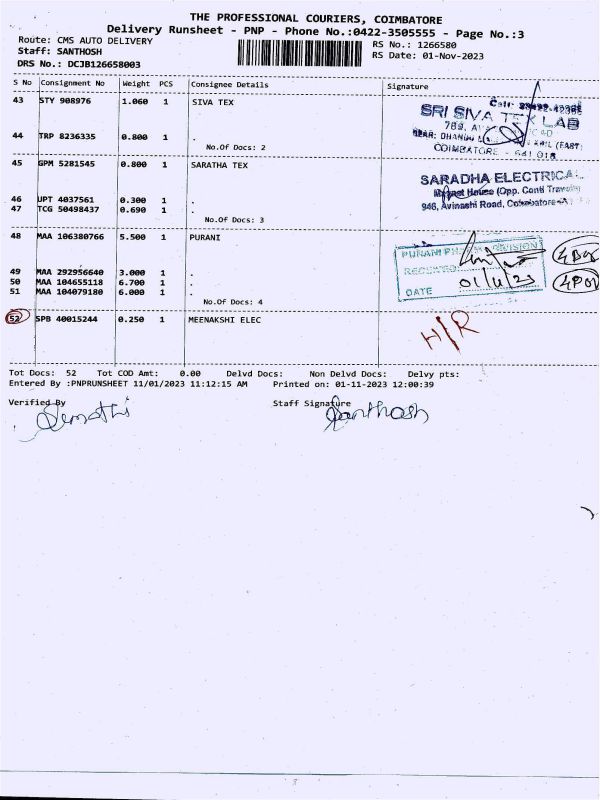 THE PROFESSIONAL COURIERS, COIMBATORE
Delivery Runsheet - PNP - Phone No.:0422-3505555 - Page No.:3
Route: CMS AUTO DELIVERY
RS No.: 1266580
Staff: SANTHOSH
RS Date: 01-Nov-2023
DRS No.: DCJB126658003
S No Consignment No Weight PCS Consignee Details Signature
43 STY 908976 1.060 1 SIVA TEX
SRI SIVA TEX LAB
44 TRP 8236335 0.800 1 .
No.Of Docs: 2
COIMBATORE - 641 018
45 GPM 5281545 0.800 1 SARATHA TEX
SARADHA ELECTRICAL
Magnet House (Opp. Conti Travels)
46 UPT 4037561 0.300 1 .
946, Avinashi Road, Coimbatore-
47 TCG 50498437 0.690 1 .
No.Of Docs: 3
48 MAA 106380766 5.500 1 PURANI
PURANI DIVISION
RECEIVED
49 MAA 292956640 3.000 1 .
50 MAA 104655118 6.700 1 .
DATE 01/11/23
51 MAA 104079180 6.000 1 .
No.Of Docs: 4
52 SPB 40015244 0.250 1 MEENAKSHI ELEC
H/R
Tot Docs: 52 Tot COD Amt: 0.00 Delvd Docs: Non Delvd Docs: Delvy pts:
Entered By :PNPRUNSHEET 11/01/2023 11:12:15 AM Printed on: 01-11-2023 12:00:39
Verified By Staff Signature
Santhosh